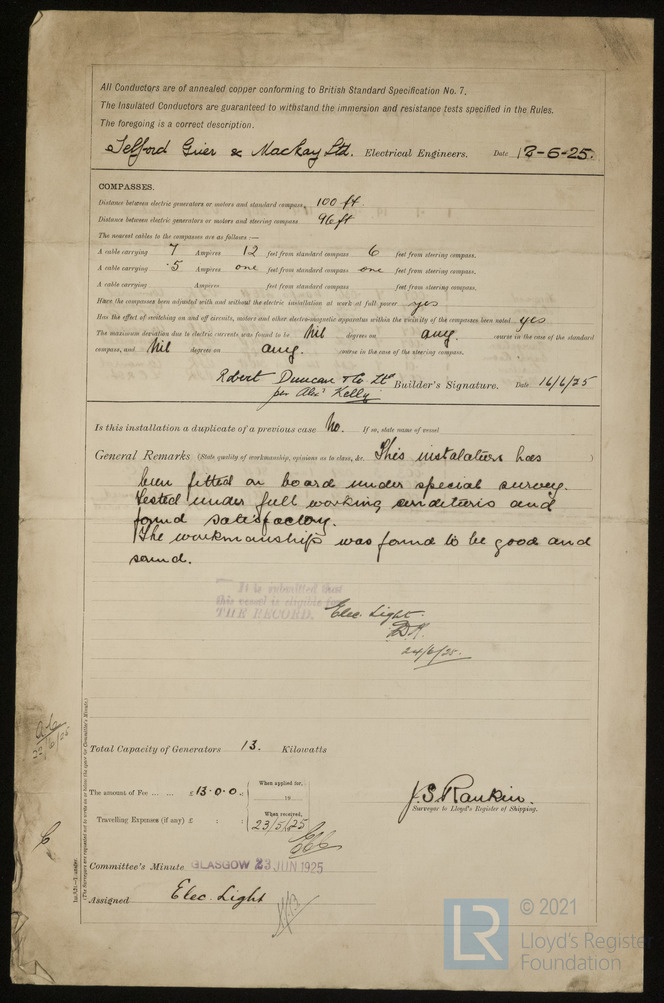 All Conductors are of annealed copper conforming to British Standard Specification No. 7.
The Insulated Conductors are guaranteed to withstand the immersion and resistance tests specified in the Rules.
The foregoing is a correct description.
Telford Grier & Mackay Ltd. Electrical Engineers. Date 13-6-25.
COMPASSES.
Distance between electric generators or motors and standard compass 100 ft.
Distance between electric generators or motors and steering compass 96 ft
The nearest cables to the compasses are as follows :—
A cable carrying 7 Ampères 12 feet from standard compass 6 feet from steering compass.
A cable carrying ·5 Ampères one feet from standard compass one feet from steering compass.
A cable carrying Ampères feet from standard compass feet from steering compass.
Have the compasses been adjusted with and without the electric installation at work at full power yes
Has the effect of switching on and off circuits, motors and other electro-magnetic apparatus within the vicinity of the compasses been noted yes
The maximum deviation due to electric currents was found to be Nil degrees on any. course in the case of the standard
compass, and Nil degrees on any. course in the case of the steering compass.
Robert Duncan & Co Ltd Builder's Signature. Date 16/6/25
per Alexr Kelly
Is this installation a duplicate of a previous case No. If so, state name of vessel
General Remarks (State quality of workmanship, opinions as to class, &c. This instalation has )
been fitted on board under special survey.
Tested under full working conditions and
found satisfactory.
The workmanship was found to be good and
sound.
It is submitted that
this vessel is eligible for
THE RECORD. Elec. Light.
24/6/25.
Total Capacity of Generators 13. Kilowatts
The amount of Fee ... ... £ 13.0.0 : When applied for,
When received,
Travelling Expenses (if any) £ : : 23/5/25
J.S. Rankin.
Surveyor to Lloyd's Register of Shipping.
Committee's Minute GLASGOW 23 JUN 1925
Assigned Elec. Light
© 2021
LR
Lloyd's Register
Foundation